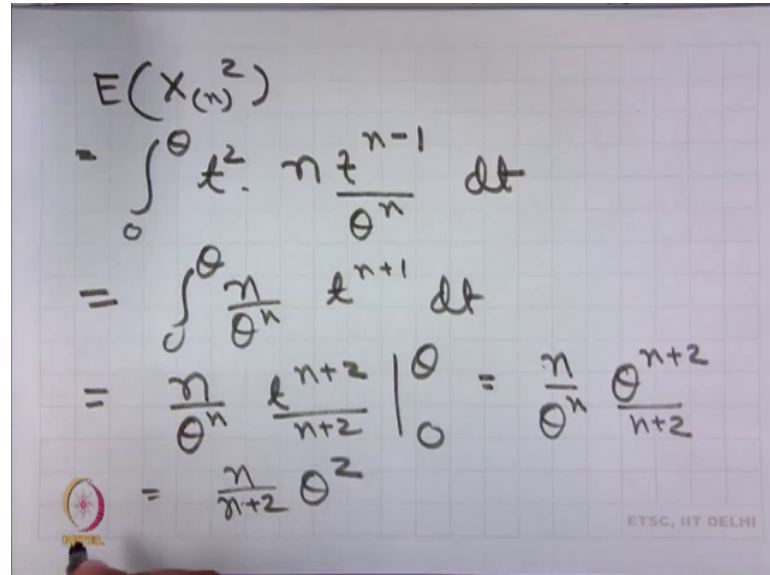 E(X_(n)^2)
= ∫_0^θ t^2 · n t^(n-1)/θ^n dt
= ∫_0^θ n/θ^n t^(n+1) dt
= n/θ^n t^(n+2)/(n+2) |_0^θ = n/θ^n θ^(n+2)/(n+2)
= n/(n+2) θ^2
NPTEL
ETSC, IIT DELHI